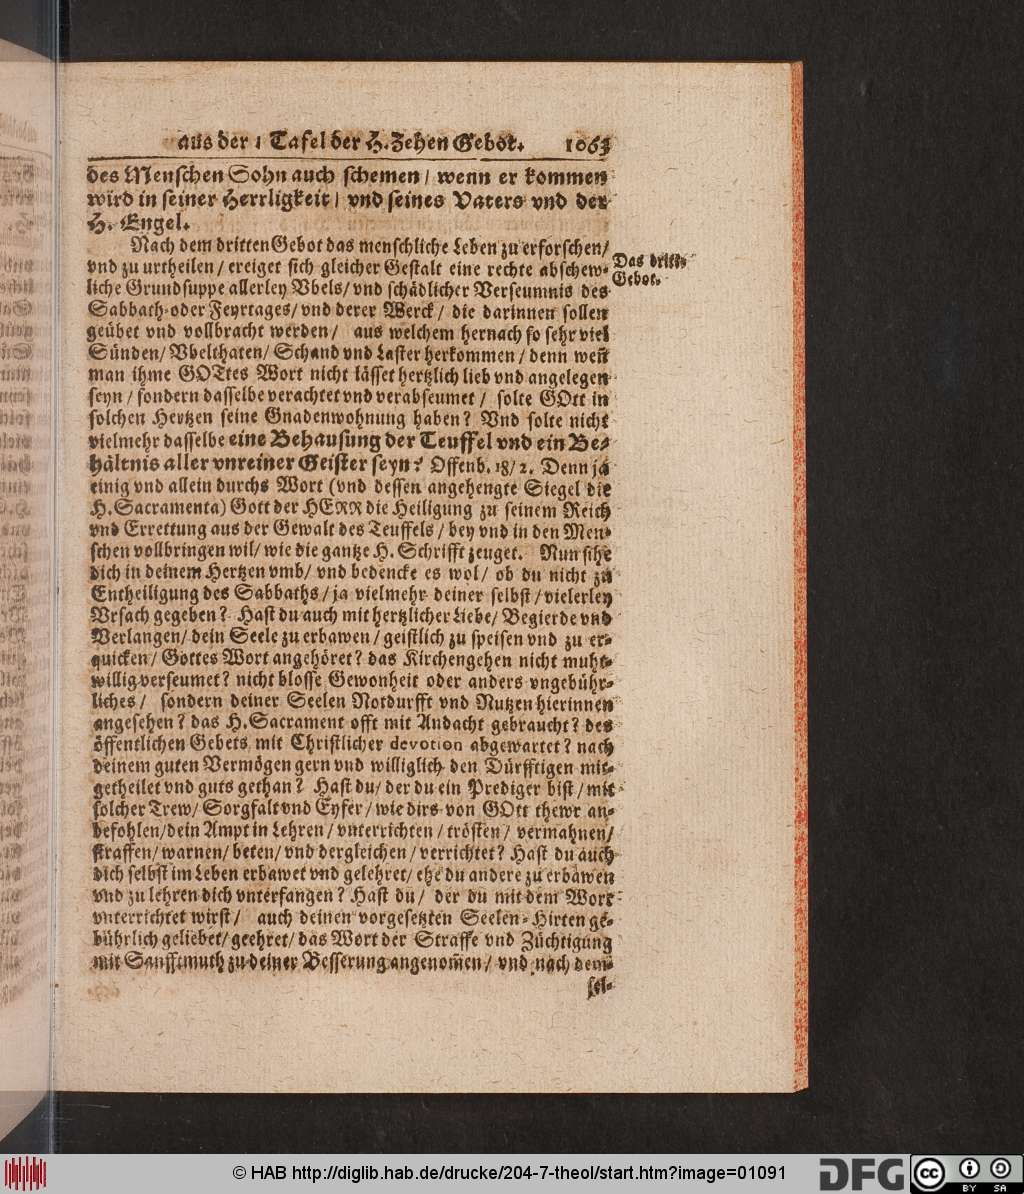 aus der 1 Tafel der H. Zehen Gebot. 1063
des Menschen Sohn auch schemen / wenn er kommen
wird in seiner Herrligkeit / vnd seines Vaters vnd der
H. Engel.
Nach dem dritten Gebot das menschliche Leben zu erforschen /
vnd zu urtheilen / ereiget sich gleicher Gestalt eine rechte abschew-
liche Grundsuppe allerley Vbels / vnd schädlicher Verseumnis des
Sabbath- oder Feyrtages / vnd derer Werck / die darinnen sollen
geübet vnd vollbracht werden / aus welchem hernach so sehr viel
Sünden / Vbelthaten / Schand vnd Laster herkommen / denn weñ
man ihme GOTtes Wort nicht lässet hertzlich lieb vnd angelegen
seyn / sondern dasselbe verachtet vnd verabseumet / solte GOtt in
solchen Hertzen seine Gnadenwohnung haben? Vnd solte nicht
vielmehr dasselbe eine Behausung der Teuffel vnd ein Be-
hältnis aller vnreiner Geister seyn? Offenb. 18 / 2. Denn ja
einig vnd allein durchs Wort (vnd dessen angehengte Siegel die
H. Sacramenta) Gott der HERR die Heiligung zu seinem Reich
vnd Errettung aus der Gewalt des Teuffels / bey vnd in den Men-
schen vollbringen wil / wie die gantze H. Schrifft zeuget. Nun sihe
dich in deinem Hertzen vmb / vnd bedencke es wol / ob du nicht zu
Entheiligung des Sabbaths / ja vielmehr deiner selbst / vielerley
Vrsach gegeben? Hast du auch mit hertzlicher Liebe / Begierde vnd
Verlangen / dein Seele zu erbawen / geistlich zu speisen vnd zu er-
quicken / Gottes Wort angehöret? das Kirchengehen nicht muht-
willig verseumet? nicht blosse Gewonheit oder anders vngebühr-
liches / sondern deiner Seelen Notdurfft vnd Nutzen hierinnen
angesehen? das H. Sacrament offt mit Andacht gebraucht? des
öffentlichen Gebets mit Christlicher devotion abgewartet? nach
deinem guten Vermögen gern vnd williglich den Dürfftigen mit-
getheilet vnd guts gethan? Hast du / der du ein Prediger bist / mit
solcher Trew / Sorgfalt vnd Eyfer / wie dirs von GOtt thewr an-
befohlen / dein Ampt in Lehren / vnterrichten / trösten / vermahnen /
straffen / warnen / beten / vnd dergleichen / verrichtet? Hast du auch
dich selbst im Leben erbawet vnd gelehret / ehe du andere zu erbawen
vnd zu lehren dich vnterfangen? Hast du / der du mit dem Wort
vnterrichtet wirst / auch deinen vorgesetzten Seelen-Hirten ge-
bührlich geliebet / geehret / das Wort der Straffe vnd Züchtigung
mit Sanfftmuth zu deiner Besserung angenom̃en / vnd nach dem-
sel-
Das dritte
Gebot.
© HAB http://diglib.hab.de/drucke/204-7-theol/start.htm?image=01091
DFG
cc
BY SA